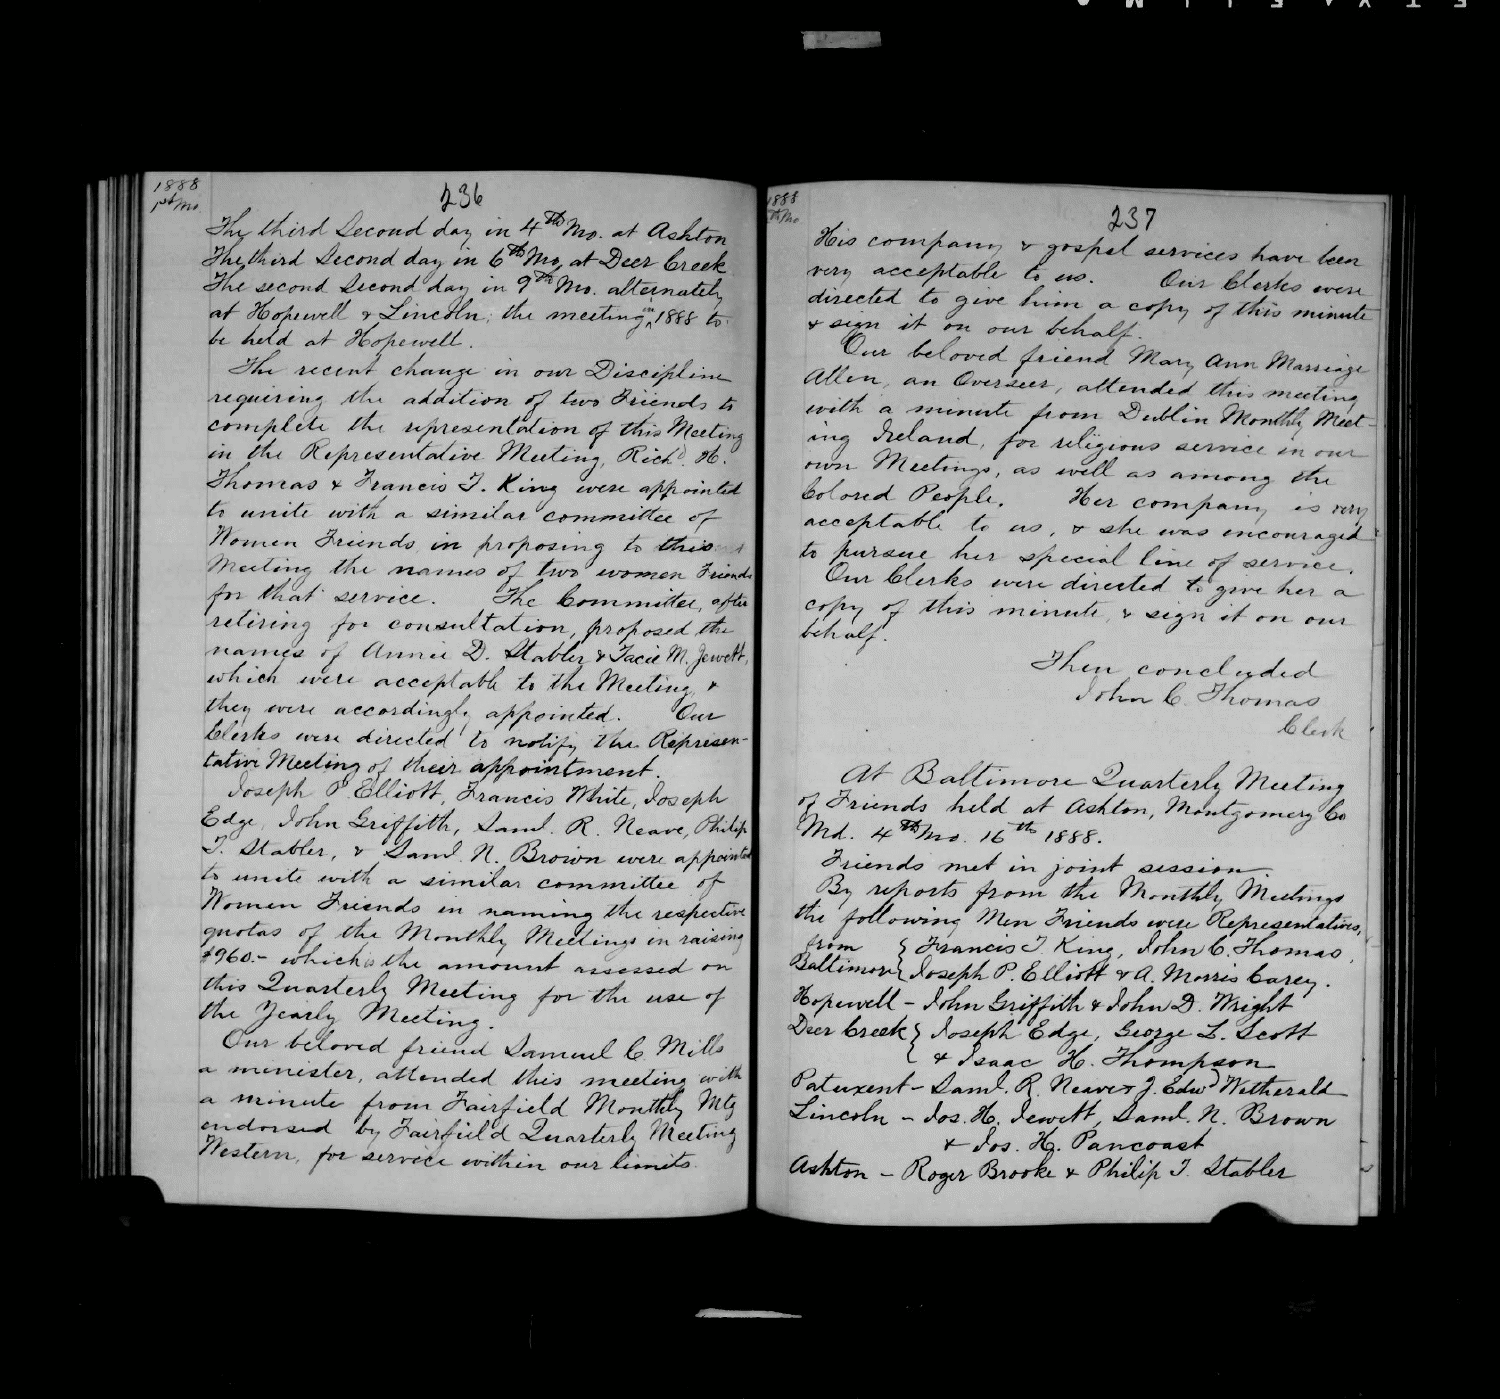 1888
1st Mo.
236
The third Second day in 4th Mo. at Ashton
The third Second day in 6th Mo. at Deer Creek
The second Second day in 9th Mo. alternately
at Hopewell & Lincoln; the meeting in 1888 to
be held at Hopewell.
The recent change in our Discipline
requiring the addition of two Friends to
complete the representation of this Meeting
in the Representative Meeting, Richd. H.
Thomas & Francis T. King were appointed
to unite with a similar committee of
Women Friends in proposing to this
Meeting the names of two women Friends
for that service. The Committee, after
retiring for consultation, proposed the
names of Annie D. Stabler & Tacie M. Jewett,
which were acceptable to the Meeting, &
they were accordingly appointed. Our
Clerks were directed to notify the Represen-
tative Meeting of their appointment.
Joseph P. Elliott, Francis White, Joseph
Edge, John Griffith, Saml. R. Neave, Philip
T. Stabler, & Saml. N. Brown were appointed
to unite with a similar committee of
Women Friends in naming the respective
quotas of the Monthly Meetings in raising
$960.- which is the amount assessed on
this Quarterly Meeting for the use of
the Yearly Meeting.
Our beloved friend Samuel C. Mills
a minister, attended this meeting with
a minute from Fairfield Monthly Mtg
endorsed by Fairfield Quarterly Meeting
Western, for service within our limits.
1888
th Mo
237
His company & gospel services have been
very acceptable to us. Our Clerks were
directed to give him a copy of this minute
& sign it on our behalf.
Our beloved friend Mary Ann Marriage
Allen, an Overseer, attended this meeting
with a minute from Dublin Monthly Meet-
ing Ireland, for religious service in our
own Meetings, as well as among the
Colored People. Her company is very
acceptable to us, & she was encouraged
to pursue her special line of service.
Our Clerks were directed to give her a
copy of this minute, & sign it on our
behalf.
Then concluded
John C. Thomas
Clerk
At Baltimore Quarterly Meeting
of Friends held at Ashton, Montgomery Co
Md. 4th Mo. 16th 1888.
Friends met in joint session.
By reports from the Monthly Meetings
the following Men Friends were Representatives,
from { Francis T King, John C. Thomas,
Baltimore { Joseph P. Elliott & A. Morris Carey.
Hopewell - John Griffith & John D. Wright
Deer Creek { Joseph Edge, George L. Scott
& Isaac H. Thompson
Patuxent - Saml. R. Neave & J. Edwd Wetherald
Lincoln - Jos. H. Jewett, Saml. N. Brown
& Jos. H. Pancoast
Ashton - Roger Brooke & Philip T. Stabler